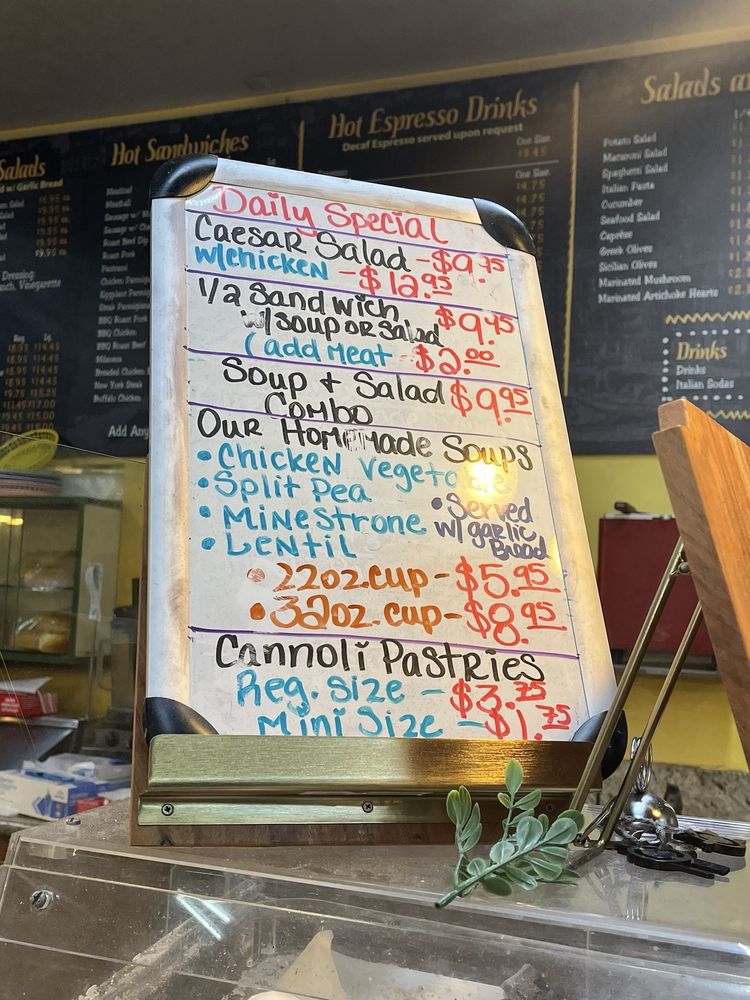 Daily Special
Caesar Salad - $9.75
w/chicken - $12.95
1/2 Sandwich $9.45
w/soup or salad
(add meat - $2.00
Soup + Salad $9.95
Combo
Our Homemade Soups
• Chicken Vegeta
• Split Pea
• Minestrone
• Lentil
• Served
w/ garlic
Bread
• 22oz. cup - $5.95
• 32oz. cup - $8.95
Cannoli Pastries
Reg. size - $3.75
Mini Size - $1.75
Salads
w/ Garlic Bread
Hot Sandwiches
Meatloaf
Meatball
Pastrami
BBQ Roast Pork
BBQ Chicken
BBQ Roast Beef
Milanesa
New York Steak
Buffalo Chicken
Add Any
Hot Espresso Drinks
Decaf Espresso served upon request
One Size
Salads a
Potato Salad
Macaroni Salad
Spaghetti Salad
Italian Pasta
Cucumber
Seafood Salad
Caprese
Greek Olives
Sicilian Olives
Marinated Mushroom
Marinated Artichoke Hearts
Drinks
Drinks
Italian Sodas